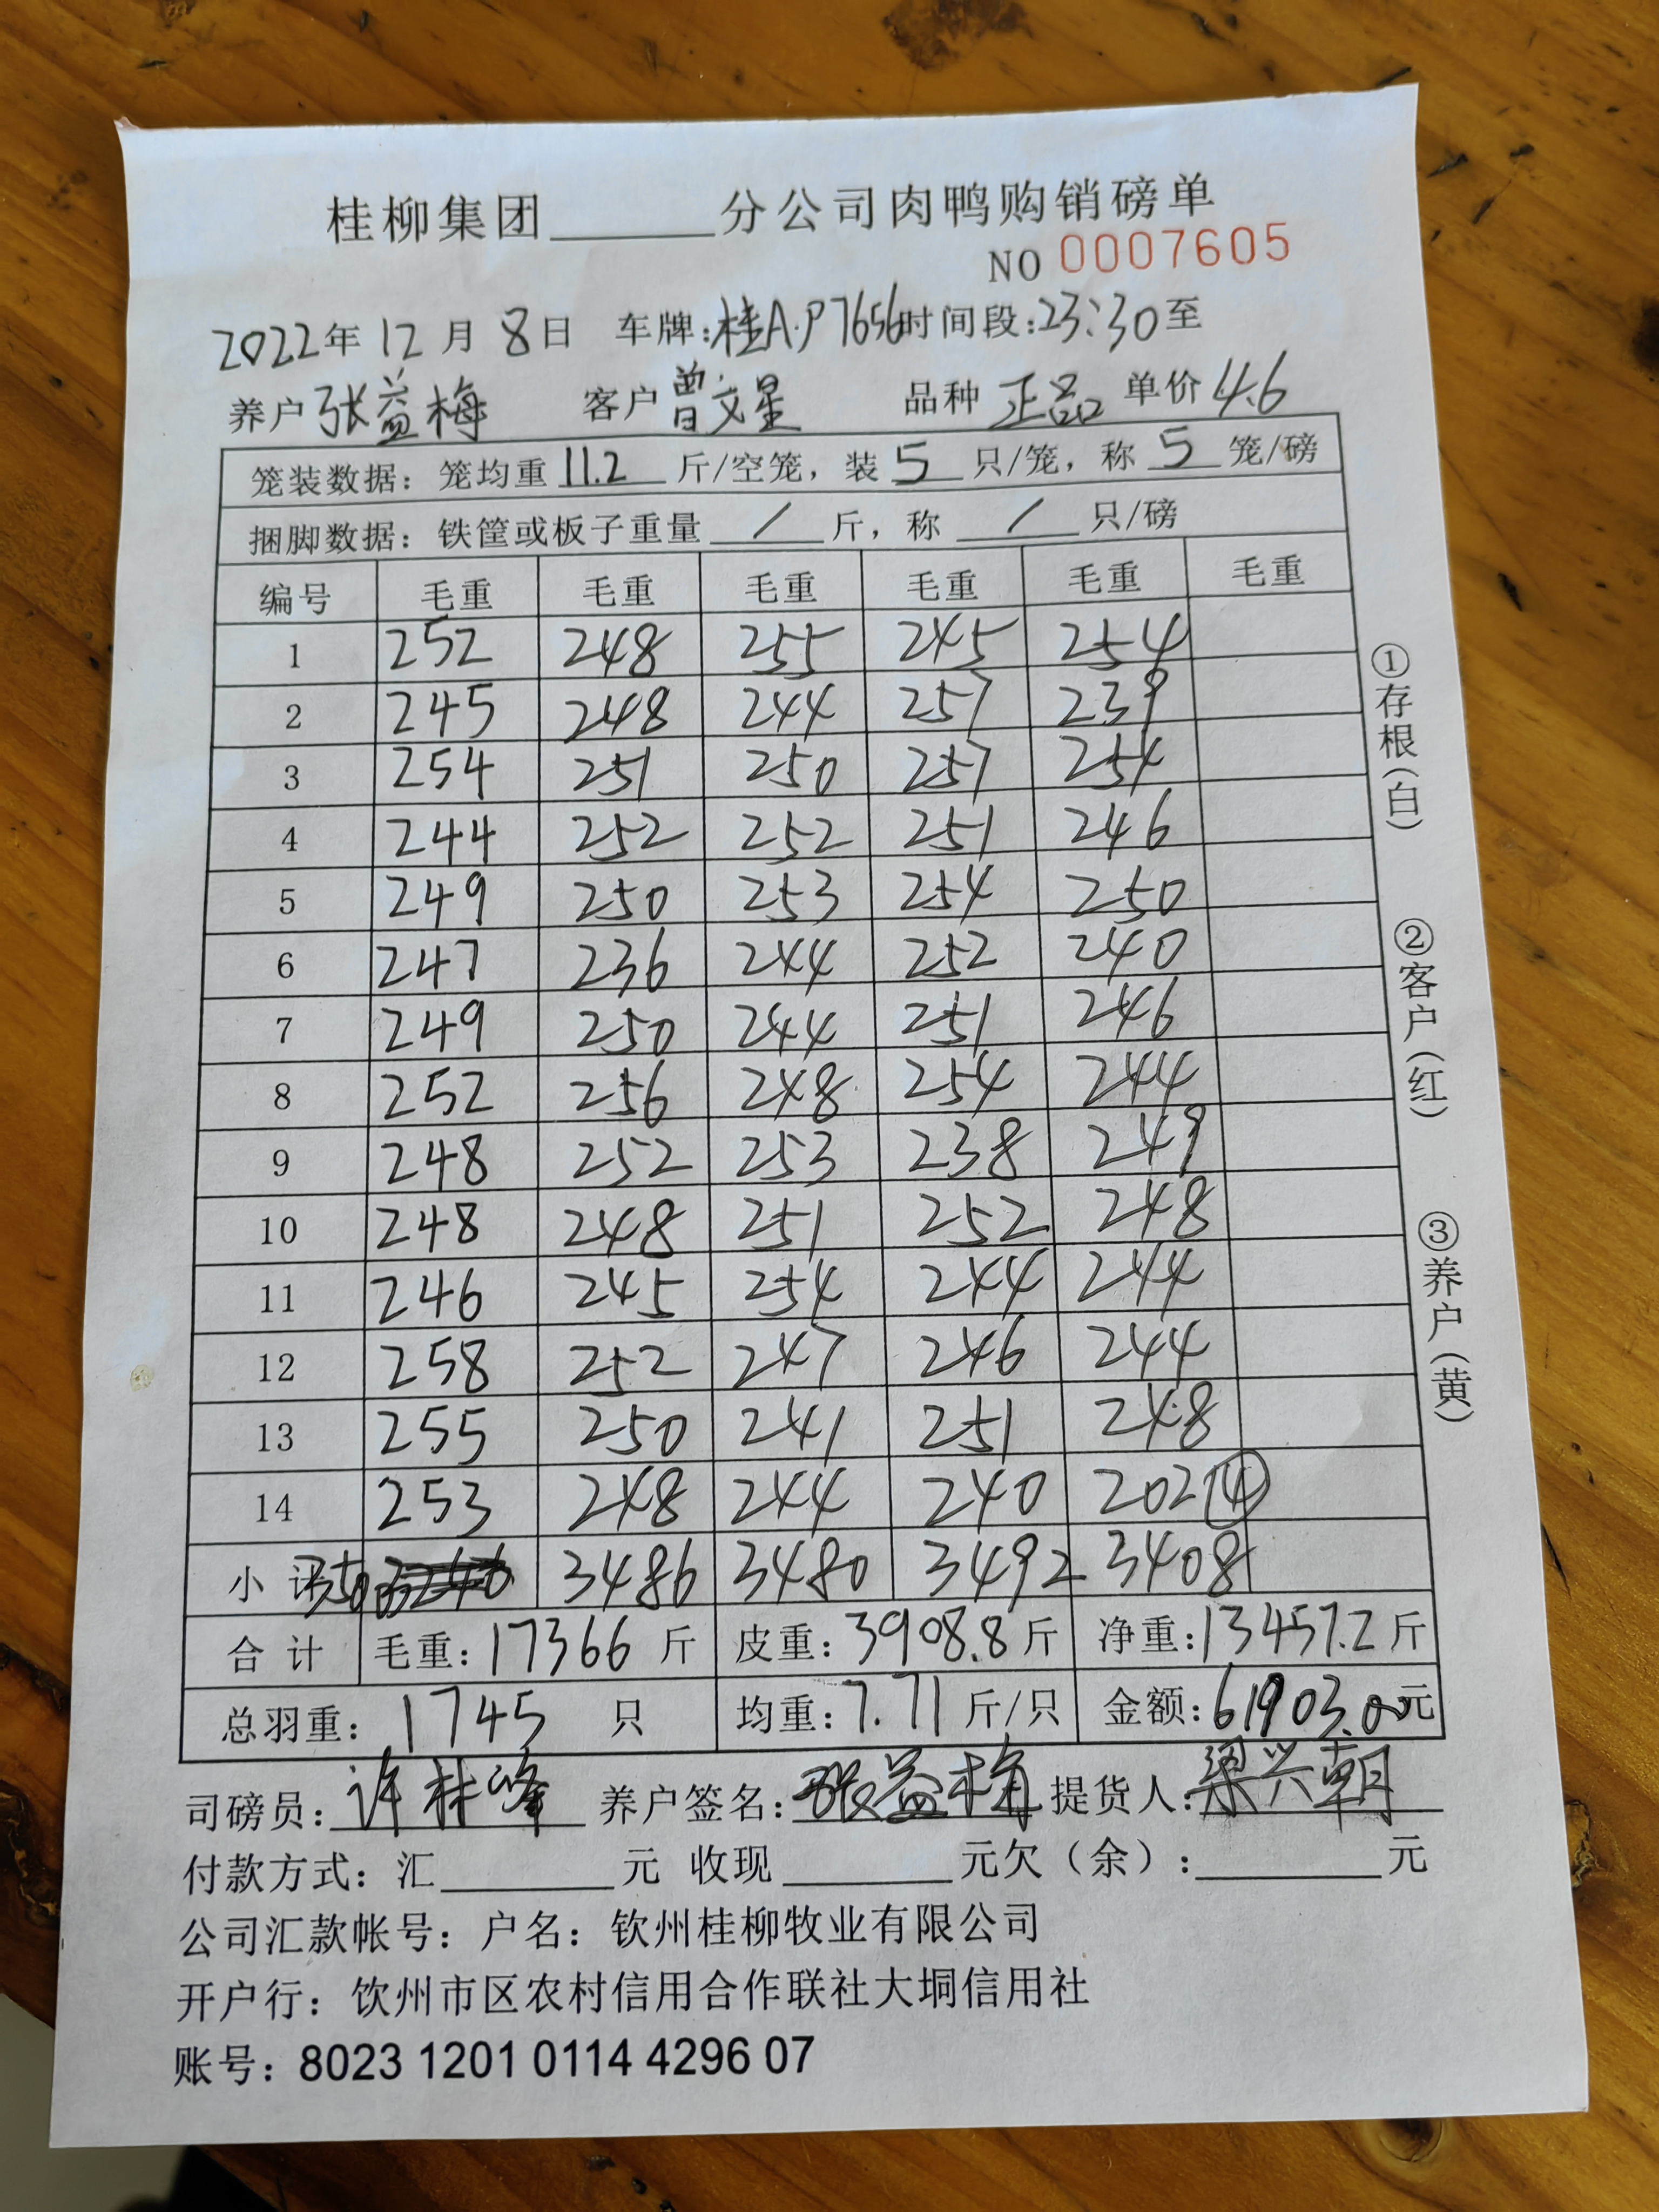 桂柳集团______分公司肉鸭购销磅单
NO 0007605
2022年 12月 8日 车牌:桂A·P7656时间段:23:30至
养户 张益梅 客户 曾文星 品种 正品 单价 4.6
笼装数据: 笼均重 11.2 斤/空笼, 装 5 只/笼, 称 5 笼/磅
捆脚数据: 铁筐或板子重量 / 斤, 称 / 只/磅
编号 毛重 毛重 毛重 毛重 毛重 毛重
1 252 248 255 245 254
2 245 248 244 257 239
3 254 251 250 257 254
4 244 252 252 251 246
5 249 250 253 254 250
6 247 236 244 252 240
7 249 250 244 251 246
8 252 256 248 254 244
9 248 252 253 238 249
10 248 248 251 252 248
11 246 245 254 244 244
12 258 252 247 246 244
13 255 250 241 251 248
14 253 248 244 240 202④
小计 3486 3480 3492 3408
合计 毛重: 17366 斤 皮重: 3908.8斤 净重: 13457.2斤
总羽重: 1745 只 均重: 7.71 斤/只 金额: 61903.00元
司磅员: 许桂峰 养户签名: 张益梅 提货人: 梁兴朝
付款方式: 汇______元 收现______元欠(余):______元
公司汇款帐号: 户名: 钦州桂柳牧业有限公司
开户行: 钦州市区农村信用合作联社大垌信用社
账号: 8023 1201 0114 4296 07
①存根(白)
②客户(红)
③养户(黄)